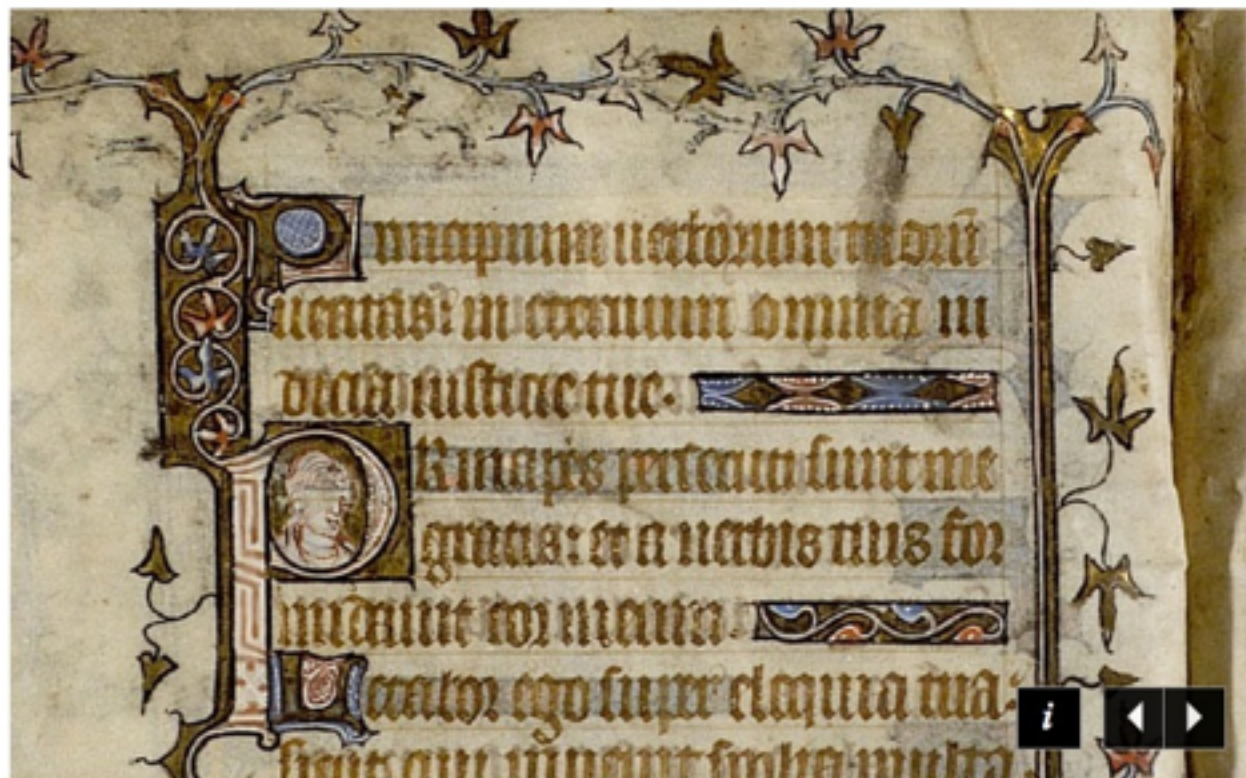 Principium uerborum tuorū
ueritas: in eternum omnia iu
dicia iusticie tue.
PRincipes persecuti sunt me
gratis: et a uerbis tuis for
midauit cor meum.
Letabor ego super eloquia tua:
sicut qui inuenit spolia multa.
i